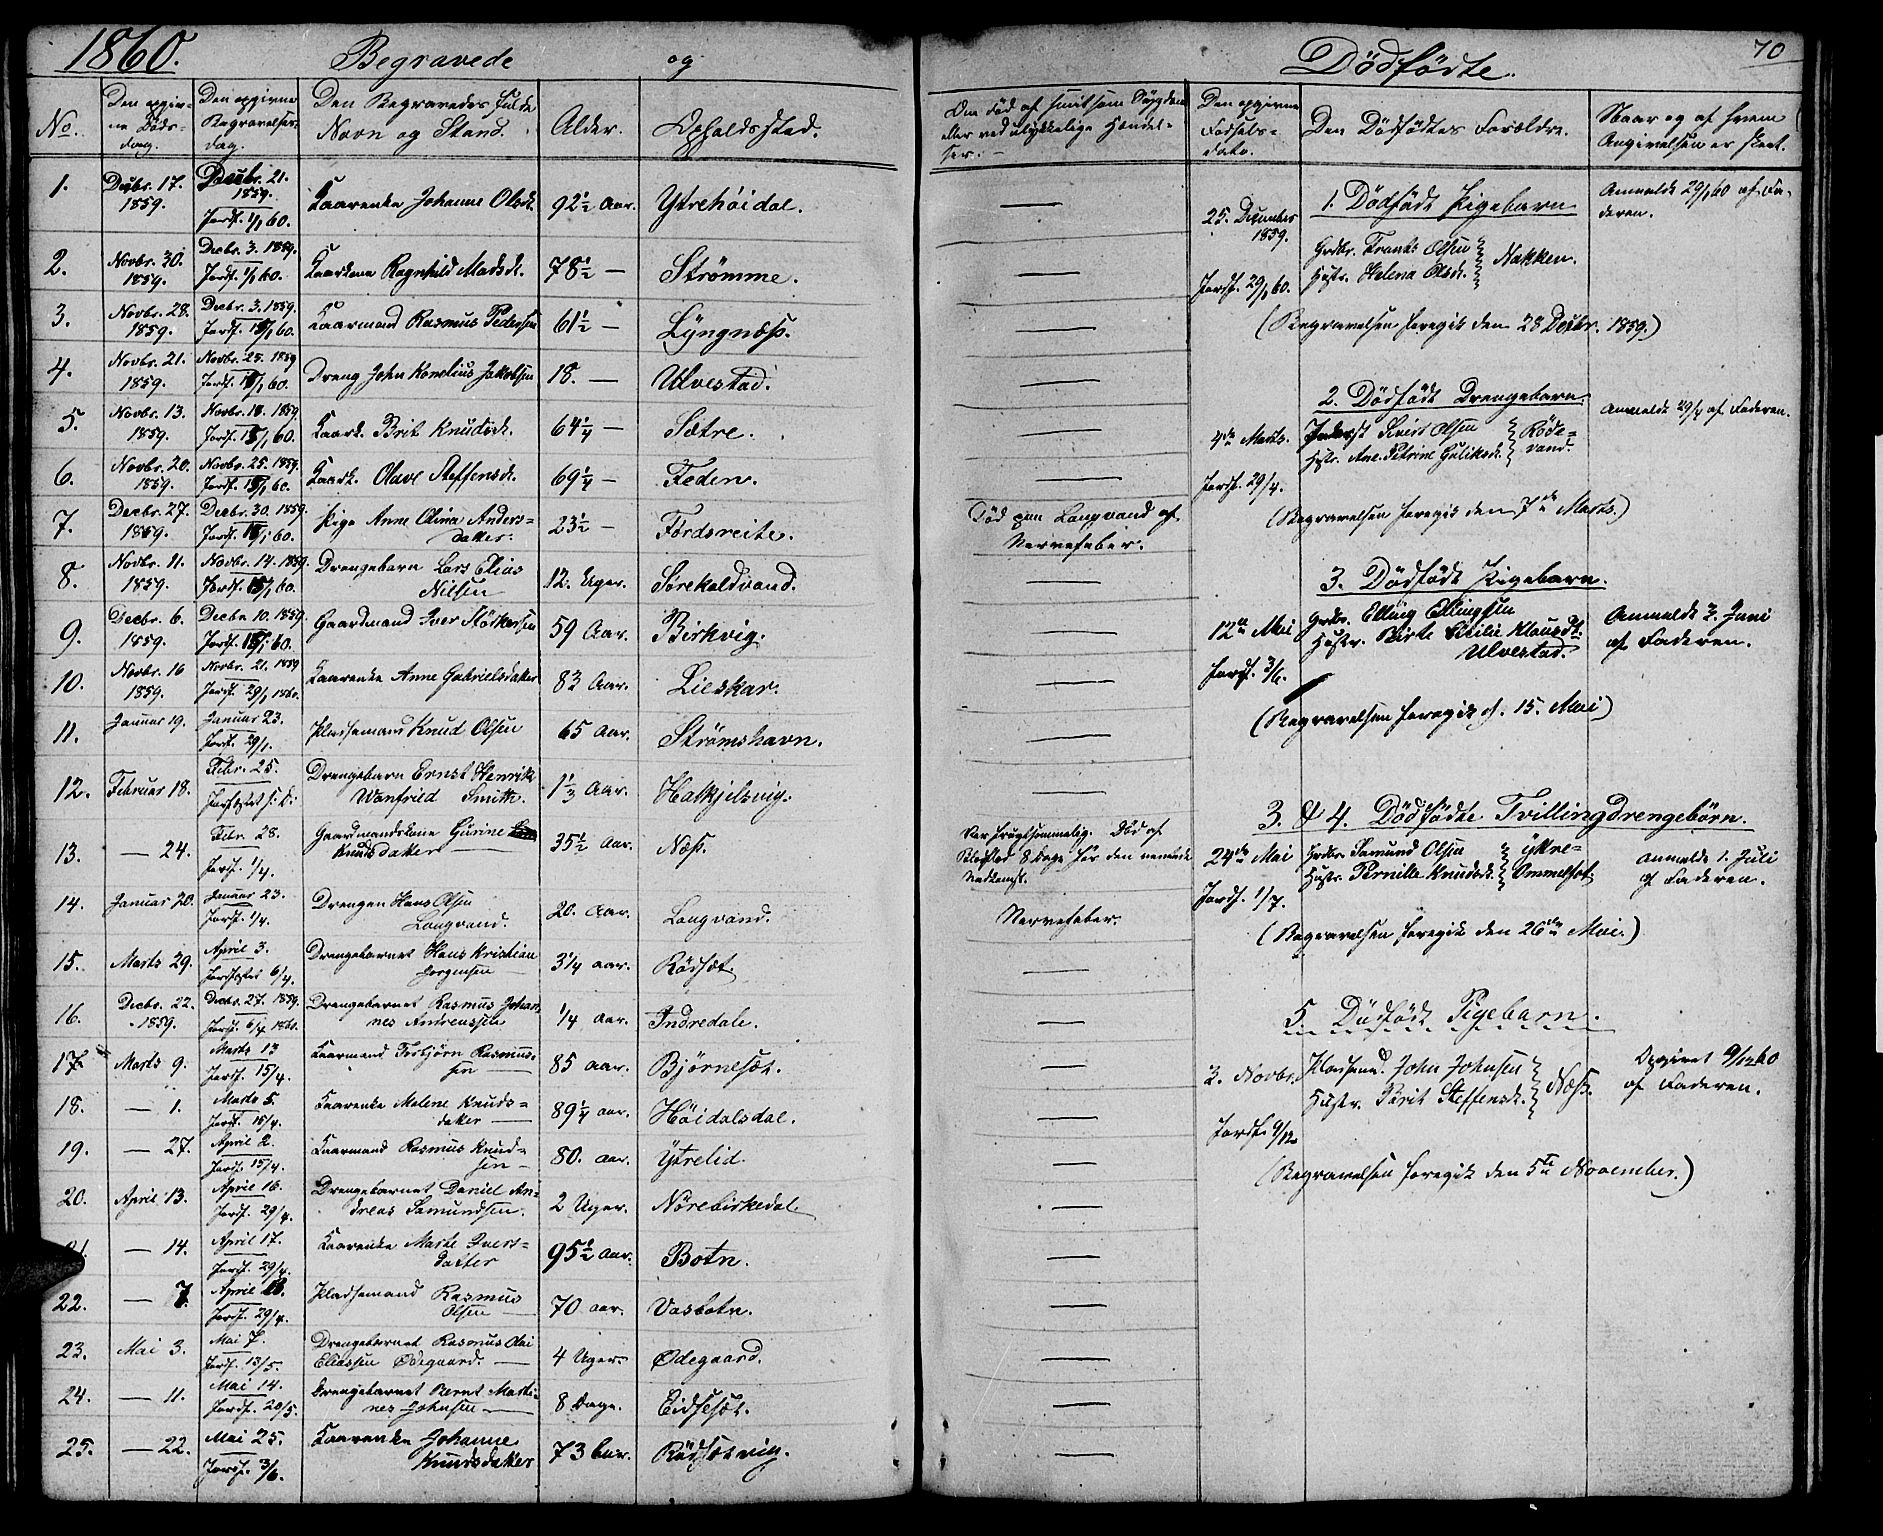 1860. Begravede og
No. Den opgivne Døds-dag. Den opgivne Begravelses-dag. Den Begravedes fulde Navn og Stand. Alder. Opholdssted.
1. Decbr. 17. 1859. Decbr. 21. 1859. Jordf. 1/1 60. Kaarenke Johanne Olsdt. 92½ Aar. Ytrehöidal.
2. Novbr. 30. 1859. Decbr. 3. 1859. Jordf. 1/1 60. Ragnhild Madsdt. 78½ — Strömme.
3. Novbr. 28. 1859. Decbr. 3. 1859. Jordf. 15/1 60. Kaarmand Rasmus Pedersen 61½ — Lyngnæss.
4. Novbr. 21. 1859. Novbr. 25. 1859 Jordf. 15/1 60. Dreng John Kornelius Jakobsen 18. — Ulvestad.
5. Novbr. 13. 1859. Novbr. 18. 1859. Jordf. 15/1 60. Kaark. Brit Knudsdt. 64¼ — Sætre.
6. Novbr. 20. 1859. Novbr. 25. 1859. Jordf. 15/1 60. Kaark. Olave Steffensdt. 69¼ — Feden.
7. Decbr. 27. 1859. Decbr. 30. 1859. Jordf. 15/1 60. Pige Anne Olina Anders-
datter. 23½ — Fördsreite.
8. Novbr. 11. 1859. Novbr. 14. 1859. Jordf. 15/1 60. Drengebarn Lars Elias
Nilsen 12. Uger. Sørekaldvand.
9. Decbr. 6. 1859. Decbr. 10. 1859. Jordf. 15/1 60. Gaardmand Iver Störkersen 59 Aar. Birkvig.
10. Novbr. 16 1859. Novbr. 21. 1859 Jordf. 29/1 1860. Kaarenke Anne Gabrielsdatter 83 Aar. Lieskar.
11. Januar 19. Januar 23. Jordf. 29/1. Pladsemand Knud Olsen 65 Aar. Strömshavn.
12. Februar 18. Febr. 25. Drengebarn Ernst Henrik
Wanfried Smith. 1⅓ Aar. Halkjelsvig.
13. — 24. Febr. 28. Jordf. 1/4. Gaardmandskone Gurine
Knudsdatter 35½ Aar. Næss.
14. Januar 20. Januar 23. Jordf. 1/4. Drengen Hans Olsen
Langvand. 20. Aar. Langvand.
15. Marts 29. April 3. Jordfæstet 6/4. Drengebarnet Hans Kristian
Jörgensen 3¼ Aar. Rödsæt.
16. Decbr. 22. 1859. Decbr. 27. 1859. Jordf. 6/4 1860. Drengebarnet Rasmus Johan-
nes Andreassen ¼ Aar. Indredale.
17. Marts 9. Marts 13 Jordf. 15/4. Kaarmand Torbjörn Rasmus-
sen 85 Aar. Bjørnesæt.
18. — 1. Marts 5. Jordf. 15/4. Kaarenke Malene Knuds-
datter 89¼ Aar. Höidalsdal.
19. — 27. April 2. Jordf. 15/4. Kaarmand Rasmus Knud-
sen 80. Aar. Ytrelid.
20. April 13. April 16. Jordf. 29/4. Drengebarnet Daniel An-
dreas Samundsen. 2 Uger. Nörebirkedal.
21. — 14. April 17. Jordf. 29/4. Kaarenke Marte Ivers-
datter 95½ Aar. Botn.
22. — 7. April Jordf. 29/4. Pladsemand Rasmus
Olsen 70 Aar. Vasbotn.
23. Mai 3. Mai 7. Jordf. 13/5. Drengebarnet Rasmus
Eliassen Ødegaard. 4 Uger. Ødegaard.
24. — 11. Mai 14. Jordf. 20/5. Drengebarnet Bernt Marti-
nes Johnsen 8 Dage. Eidsesæt.
25. — 22. Mai 25. Jordf. 3/6. Kaarenke Johanne
Knudsdatter 73 Aar. Rödsætvig.
Dödfödte. 70
Om Död af smitsom Sygdom
eller ved ulykkelige Hændel-
ser.
Död paa Langvand af
Nervefeber.
Var frugtsommelig. Död af
8 Dage før den ventede
Nedkomst.
Nervefeber.
Den opgivne Fødsels-dato. Den Dödfödtes Forældre. Naar og af hvem
Angivelsen er skeet.
1. Dödfödt Pigebarn
25. December 1859. Grdbr. Frants Olsen
Hustr. Helena Olsdt. Nakken. Anmeldt 29/1 60 af Fa-
deren.
Jordf. 29/1 60.
(Begravelsen foregik den 28 Decbr. 1859.)
2. Dödfödt Drengebarn.
4de Marts. Inderst Sivert Olsen
Hustr. Ane Petrine Guliksdt. Röde-
vand. Anmeldt 29/4 af Faderen.
Jordf. 29/4.
(Begravelsen foregik den 7de Marts.)
3. Dödfödt Pigebarn.
12te Mai Grdbr. Elling Ellingsen
Hustr. Birte Cecilie Klausdt.
Ulvestad. Anmeldt 3. Juni
af Faderen.
Jordf. 3/6.
(Begravelsen foregik d. 15. Mai)
3. & 4. Dödfödte Tvillingdrengebörn.
24de Mai Grdbr. Samund Olsen
Hustr. Pernille Knudsdt. Ytre-
Ommelsæt Anmeldt 1. Juli
af Faderen.
Jordf. 1/7.
(Begravelsen foregik den 26de Mai.)
5. Dödfödt Pigebarn.
2. Novbr. Pladsemd. John Johnsen
Hustr. Berit Steffensdt. Næss. Opgivet 9/12 60
af Faderen.
Jordf. 9/12
(Begravelsen foregik den 5te November.)